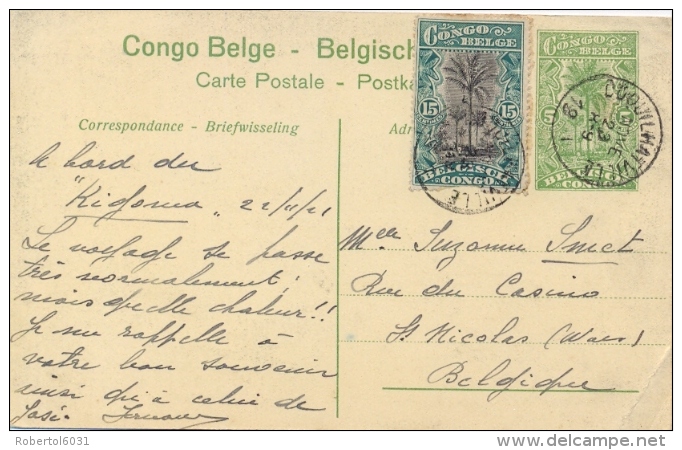 Congo Belge - Belgisch
Carte Postale - Postka
Correspondance - Briefwisseling
Adr
CONGO BELGE
15 15
BELGISCH CONGO
CONGO BELGE
5 5
BELGISCH CONGO
COQUILHATVILLE
A bord du
"Kigoma" 22/11/21
Le voyage se passe
très normalement;
mais quelle chaleur!!
Je me rappelle à
votre bon souvenir
ainsi qu'à celui de
José.
Melle Suzanne Smet
Rue du Casino
St Nicolas (Waes)
Belgique
Robertol6031
delcampe.net